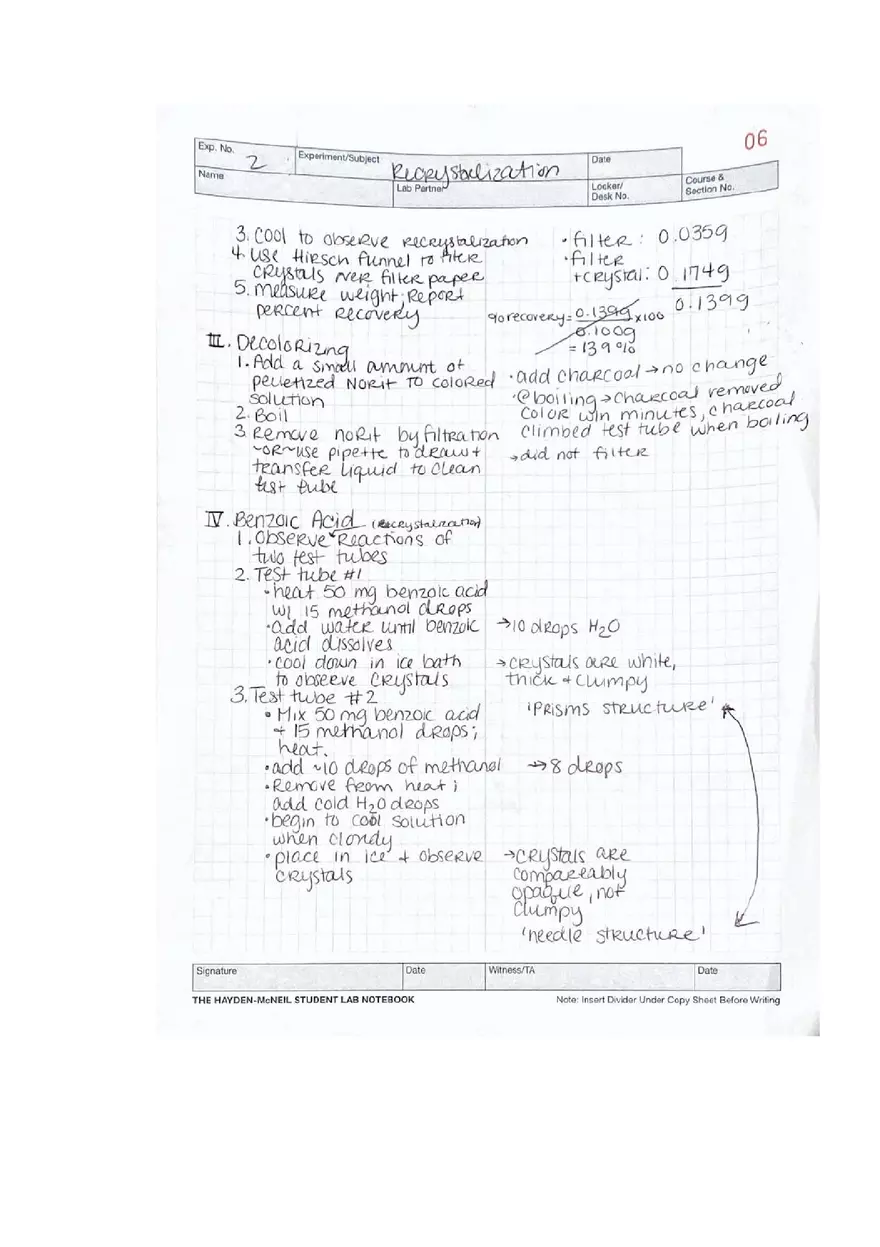 06
Exp. No. 2
Experiment/Subject Recrystalization
Date
Name
Lab Partner
Locker/
Desk No.
Course &
Section No.
3. Cool to observe recrystalization
4. Use Hirsch funnel to filter
crystals over filter paper
5. Measure weight; Report
percent recovery
• filter: 0.035g
• filter
+ crystal: 0.174g
0.139g
% recovery = 0.139g x100
0.100g
= 139%
III. Decolorizing
1. Add a small ammount of
pelletized Norit to colored
solution
2. Boil
3. Remove norit by filtration
~OR~ use pipette to draw +
transfer liquid to clean
test tube
• add charcoal → no change
• @ boiling → charcoal removed
color w/in minutes, charcoal
climbed test tube when boiling
→ did not filter
IV. Benzoic Acid (Recrystalization)
1. Observe Reactions of
two test tubes
2. Test tube #1
• heat 50 mg benzoic acid
w/ 15 methanol drops
• add water until benzoic
acid dissolves
→ 10 drops H2O
• cool down in ice bath
to observe crystals
→ crystals are white,
thick + clumpy
'prisms structure'
3. Test tube #2
• Mix 50 mg benzoic acid
+ 15 methanol drops;
heat.
• add ~10 drops of methanol
→ 8 drops
• Remove from heat;
add cold H2O drops
• begin to cool solution
when cloudy
• place in ice + observe
crystals
→ crystals are
compareably
opaque, not
clumpy
'needle structure'
Signature
Date
Witness/TA
Date
THE HAYDEN-McNEIL STUDENT LAB NOTEBOOK
Note: Insert Divider Under Copy Sheet Before Writing